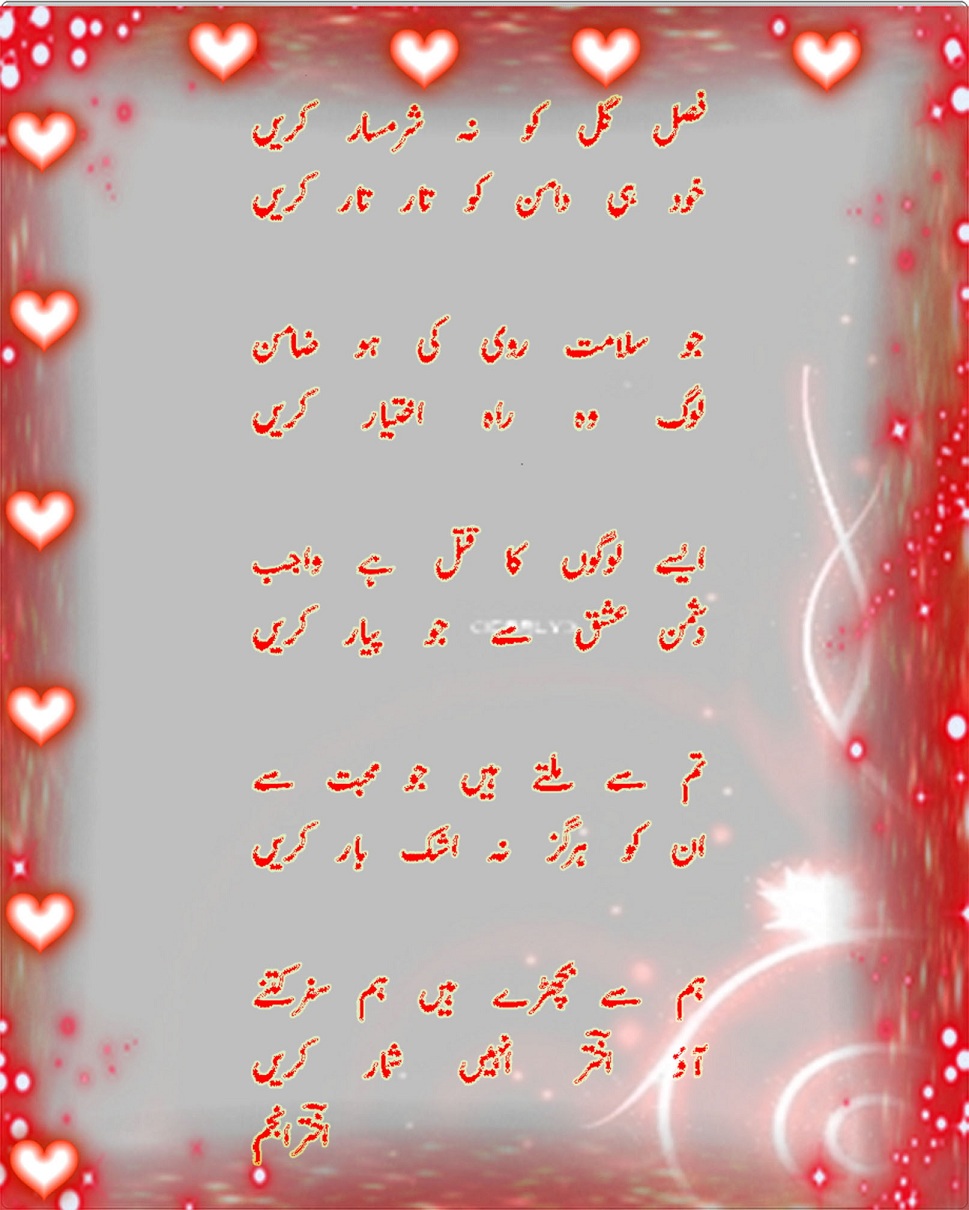 فصل گل کو نہ شرمسار کریں
خود ہی دامن کو تار تار کریں
جو سلامت روی کی ہو ضامن
لوگ وہ راہ اختیار کریں
ایسے لوگوں کا قتل ہے واجب
دشمن عشق سے جو پیار کریں
تم سے ملتے ہیں جو محبت سے
ان کو ہرگز نہ اشک بار کریں
ہم سے بچھڑے ہیں ہم سفر کتنے
آؤ اختر انہیں شمار کریں
اختر انجم